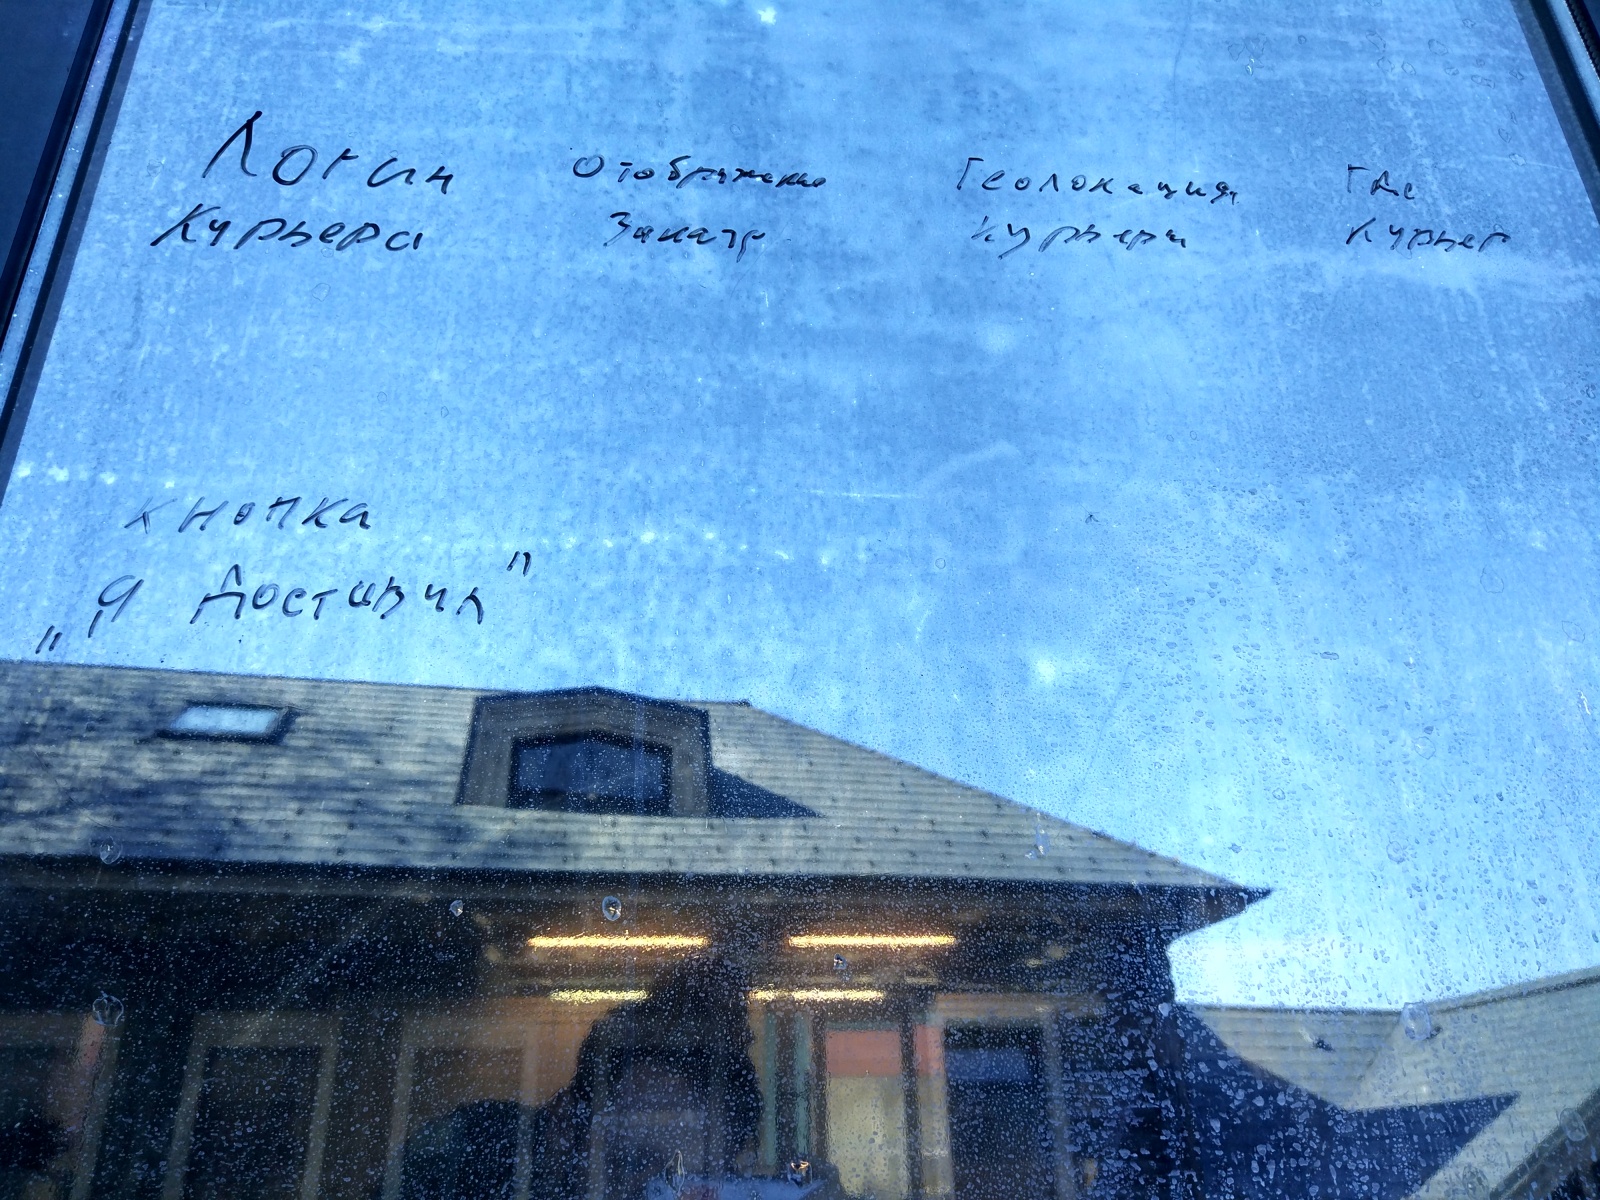 Логин
Курьера
Отображение
Заказа
Геолокация
Курьера
Где
Курьер
кнопка
„Я Доставил"